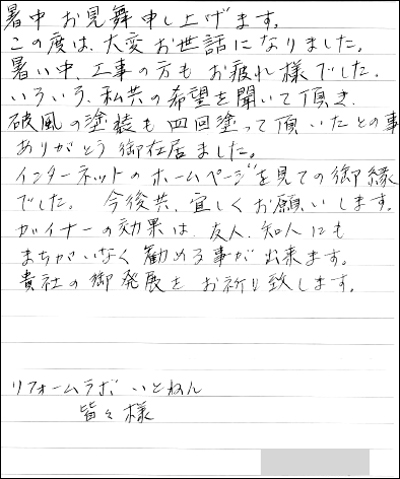 暑中お見舞申し上げます。
この度は、大変お世話になりました。
暑い中、工事の方もお疲れ様でした。
いろいろ、私共の希望を聞いて頂き、
破風の塗装も四回塗って頂いたとの事
ありがとう御在居ました。
インターネットのホームページを見ての御縁
でした。 今後共、宜しくお願いします。
ガイナーの効果は、友人、知人にも
まちがいなく勧める事が出来ます。
貴社の御発展をお祈り致します。
リフォームラボ いとねん
皆々様